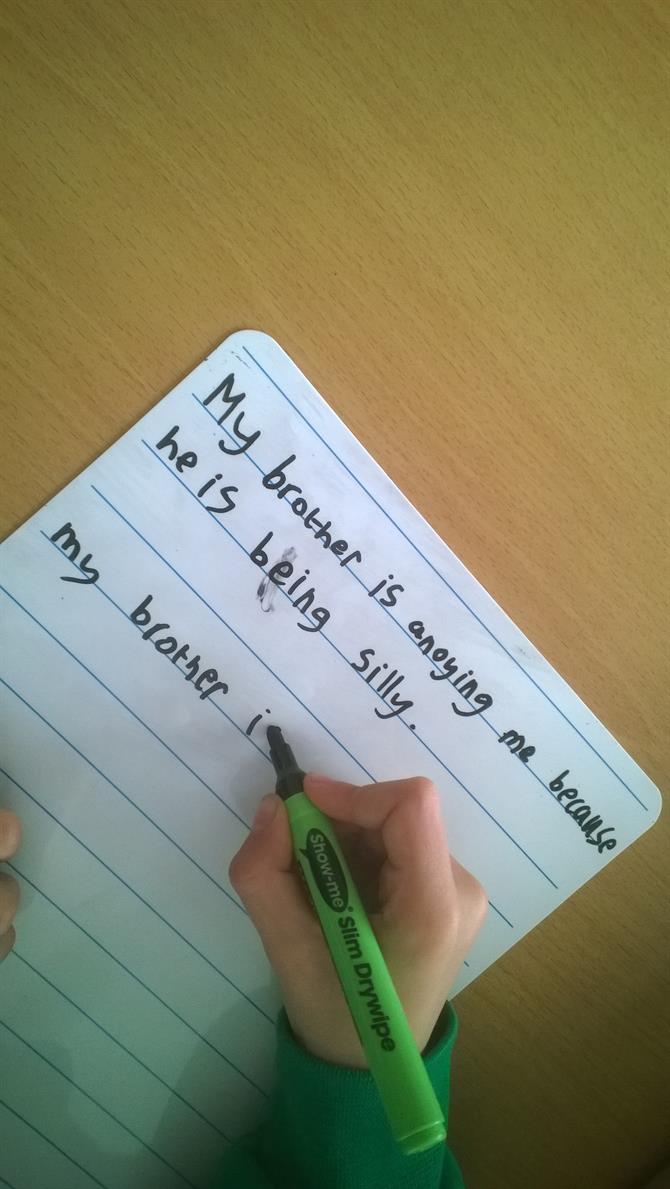 My brother is anoying me because
he is being silly.
my brother i
Show-me Slim Drywipe